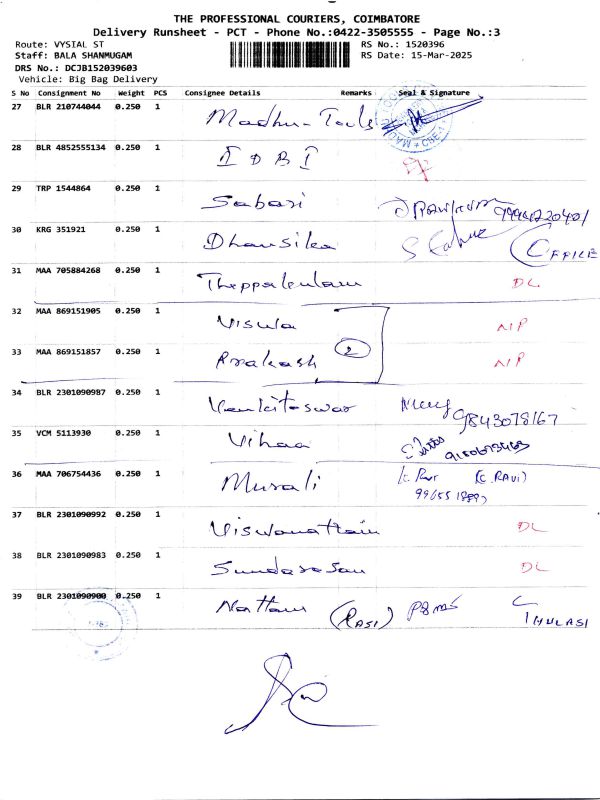 THE PROFESSIONAL COURIERS, COIMBATORE
Delivery Runsheet - PCT - Phone No.:0422-3505555 - Page No.:3
Route: VYSIAL ST
RS No.: 1520396
Staff: BALA SHANMUGAM
RS Date: 15-Mar-2025
DRS No.: DCJB152039603
Vehicle: Big Bag Delivery
S No Consignment No Weight PCS Consignee Details Remarks Seal & Signature
27 BLR 210744044 0.250 1 Madhu-Tools
28 BLR 4852555134 0.250 1 IDBI
29 TRP 1544864 0.250 1 Sabari 9994220401
30 KRG 351921 0.250 1 Dhansika OFFICE
31 MAA 705884268 0.250 1 Theppakulam DL
32 MAA 869151905 0.250 1 Viswa NP
2
33 MAA 869151857 0.250 1 Prakash NP
34 BLR 2301090987 0.250 1 Venkiteswar 9843078167
35 VCM 5113930 0.250 1 Vihaa
36 MAA 706754436 0.250 1 Murali (C. RAVI)
37 BLR 2301090992 0.250 1 Viswanathan DL
38 BLR 2301090983 0.250 1 Sundaresan DL
39 BLR 2301090900 0.250 1 (RASI) THULASI